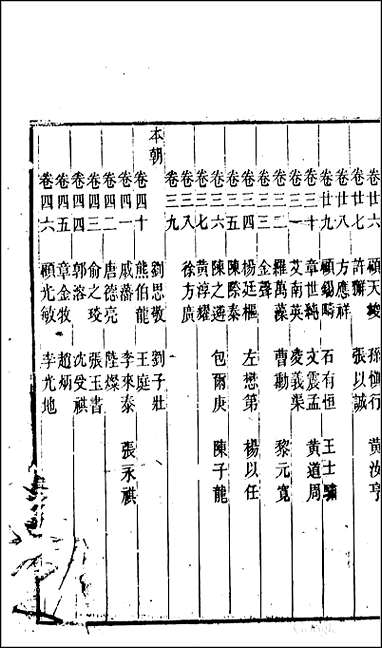 卷廿六 顧天埈 孫慎行 黄汝亨
卷廿七 許獬 張以誠
卷廿八 方應祥
卷廿九 顧錫疇 石有恒 王士驌
卷三十 章世純 文震孟 黄道周
卷三一 艾南英 凌義渠
卷三二 羅萬藻 曹勳 黎元寬
卷三三 金聲
卷三四 楊廷樞 左懋第 楊以任
卷三五 陳際泰
卷三六 陳之遴 包爾庚 陳子龍
卷三七 黄淳耀
卷三八 徐方廣
卷三九
本朝
劉思敬 劉子壯
卷四十 熊伯龍 王庭
卷四一 戚藩 李來泰 張永祺
卷四二 唐德亮 陸燦
卷四三 俞之琰 張玉書
卷四四 郭溶 沈受祺
卷四五 章金牧 趙炳
卷四六 顧光敏 李光地